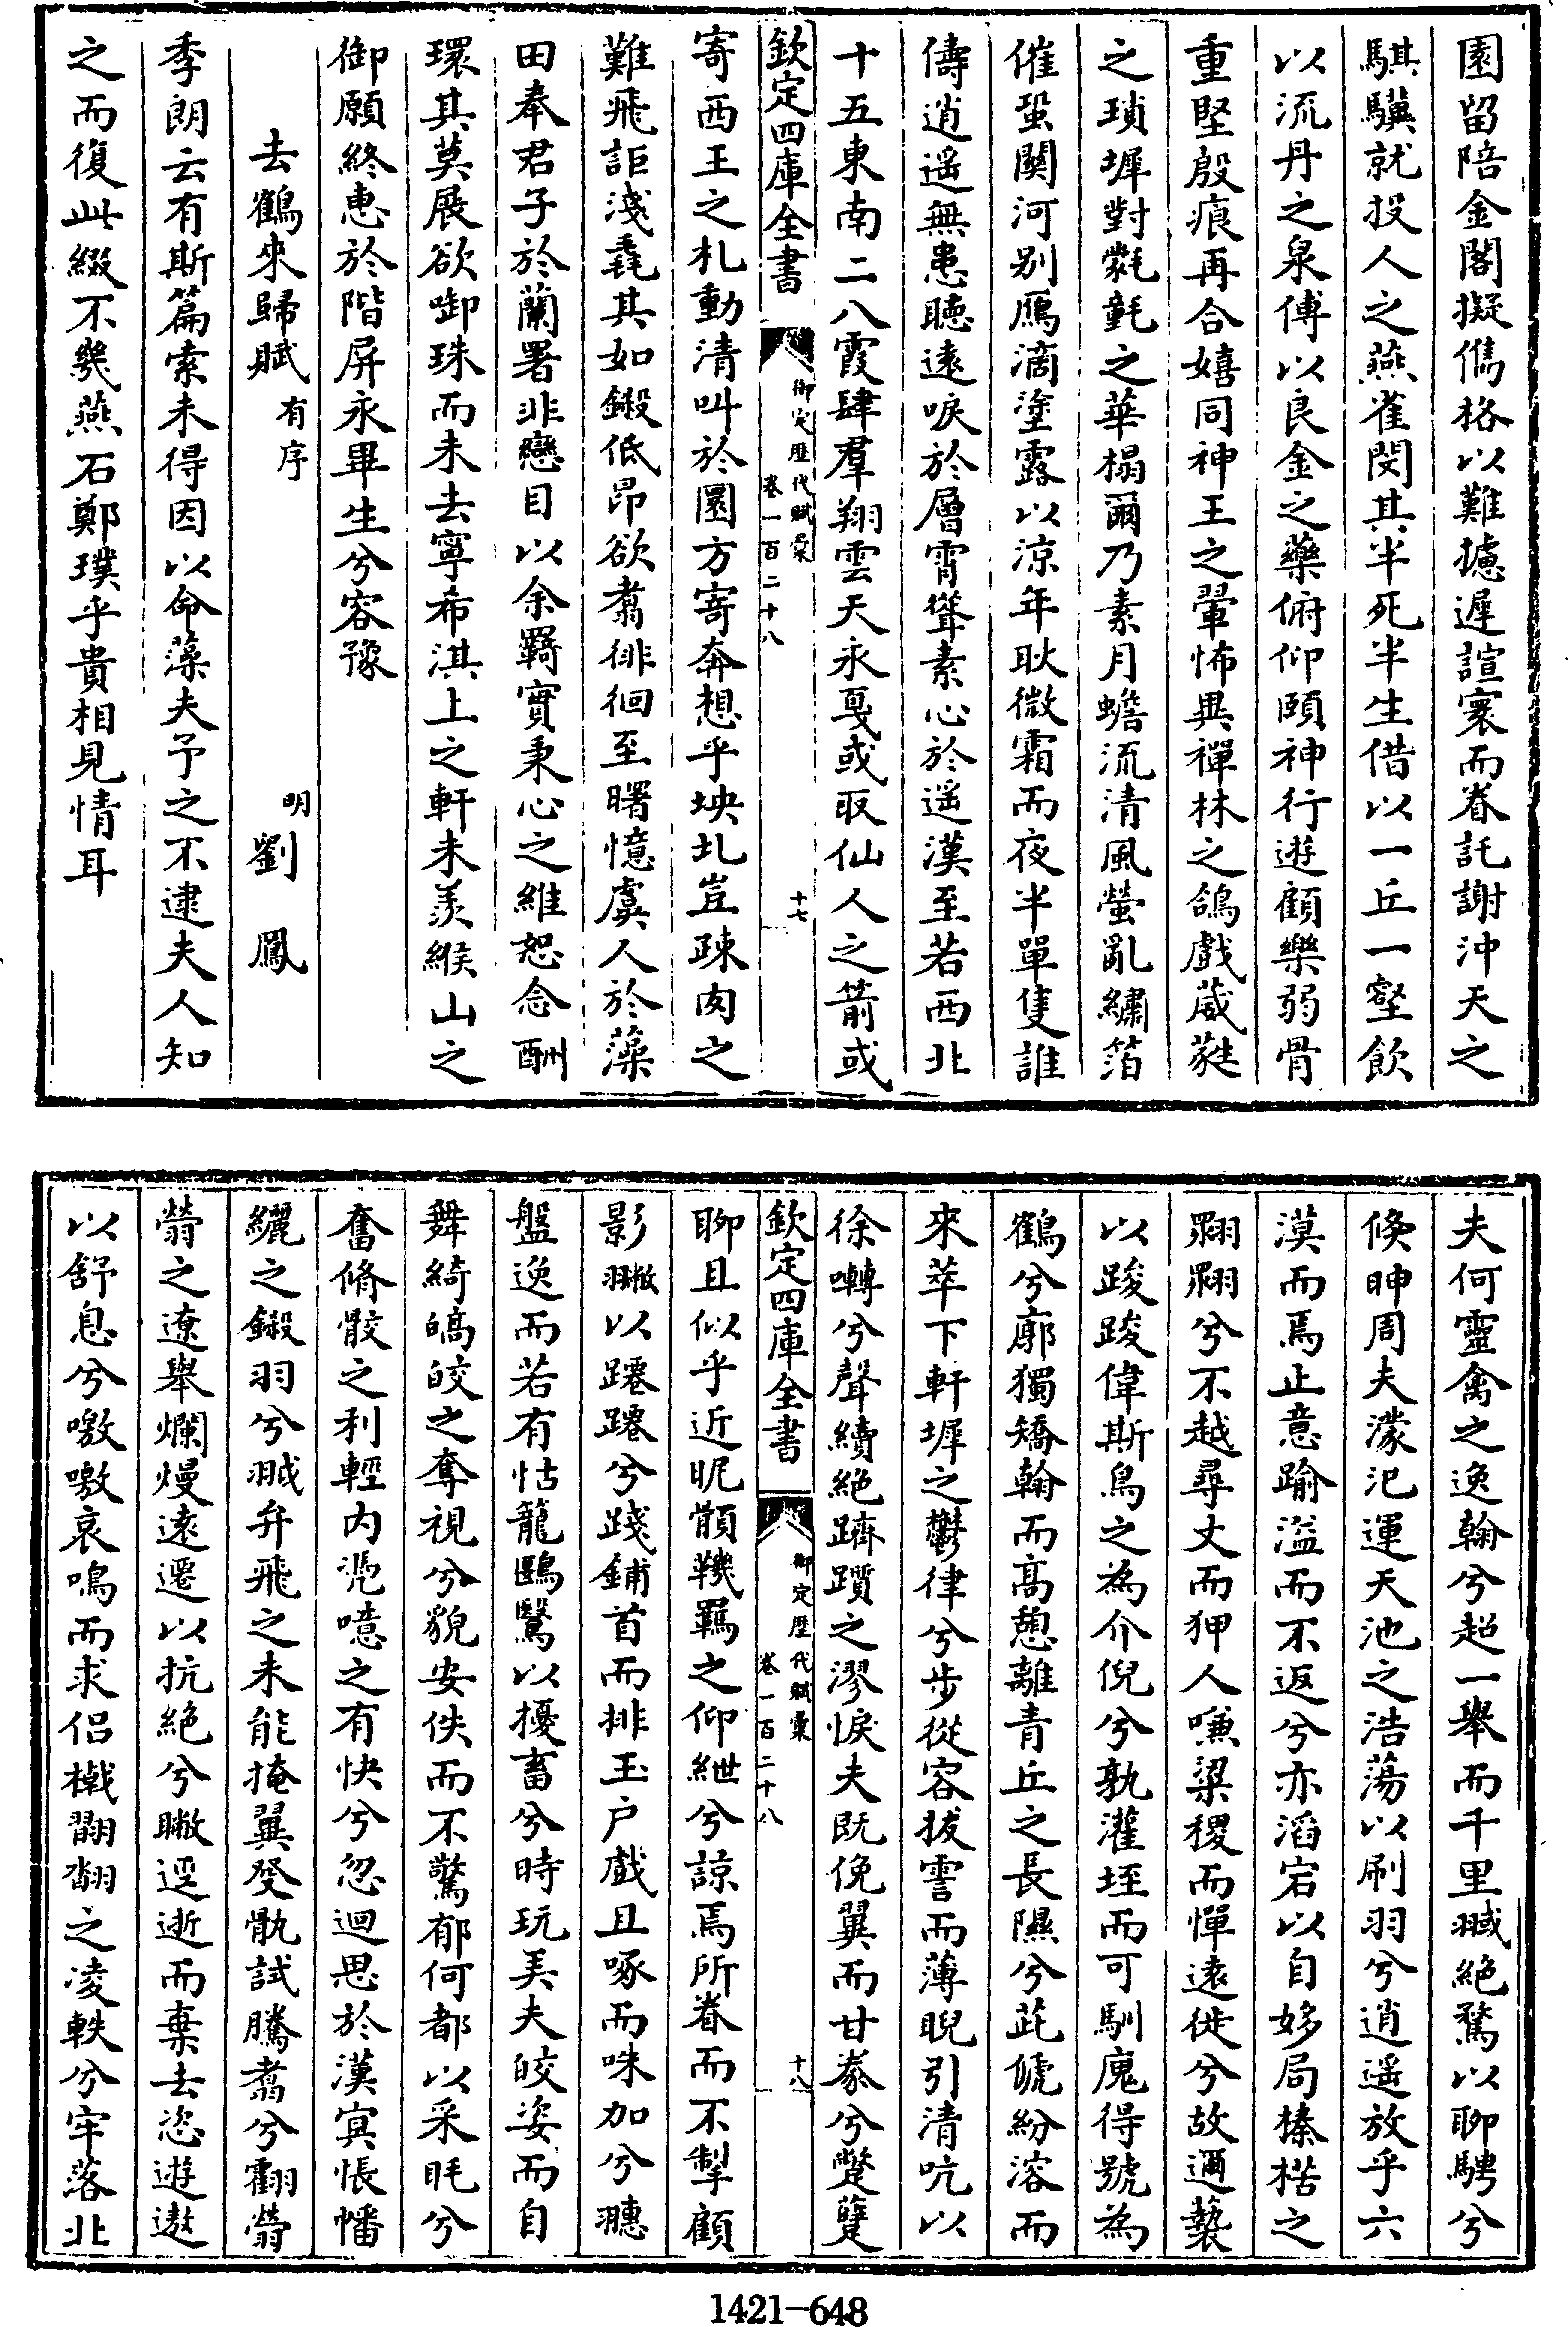 園留陪金閣擬儁格以難攄遲諠寰而眷託謝沖天之
騏驥就投人之燕雀閔其半死半生借以一丘一壑飲
以流丹之泉傅以良金之藥俯仰頤神行遊顧樂弱骨
重堅殷痕再合嬉同神王之翬怖異禪林之鴿戲葳蕤
之瑣墀對氋氃之華榻爾乃素月蟾流清風螢亂繡箔
催蛩關河別鴈滴塗露以涼年耿微霜而夜半單隻誰
儔逍遥無患聴遠唳於層霄聳素心於遥漢至若西北
十五東南二八霞肆羣翔雲天永戛或取仙人之箭或
欽定四庫全書
御定歷代賦彙
卷一百二十八
十七
寄西王之札動清叫於圜方寄奔想乎坱圠豈疎肉之
難飛詎淺毳其如鎩低昂欲翥徘徊至曙憶虞人於藻
田奉君子於蘭署非戀目以余羇實秉心之維恕念酬
環其莫展欲啣珠而未去寧希淇上之軒未羨緱山之
御願終惠於階屏永畢生兮容豫
去鶴來歸賦有序
明劉鳳
季朗云有斯篇索未得因以命藻夫予之不逮夫人知
之而復此綴不幾燕石鄭璞乎貴相見情耳
夫何靈禽之逸翰兮超一舉而千里翋絶騖以聊騁兮
倐呻周夫濛汜運天池之浩蕩以刷羽兮逍遥放乎六
漠而焉止意踰溢而不返兮亦滔宕以自姼局榛楛之
翾翾兮不越尋丈而狎人嗛粱稷而憚遠徙兮故邇褻
以踆踆偉斯鳥之為介倪兮孰灌垤而可馴廆得號為
鶴兮廓獨矯翰而高憩離青丘之長隰兮茈傂紛溶而
來萃下軒墀之鬱律兮步從容拔䨥而薄睨引清吭以
徐囀兮聲續絶躋躓之漻悷夫既俛翼而甘豢兮蹩躠
欽定四庫全書
御定歷代賦彙
卷一百二十八
十八
聊且似乎近昵顝鞿羈之仰紲兮諒焉所眷而不掣顧
影以躚躚兮踐鋪首而排玉户戲且啄而咮加兮
盤逸而若有怙籠鷗鷖以擾畜兮時玩美夫皎姿而自
舞綺皜皎之奪視兮貌安佚而不驚郁何都以采毦兮
奮脩骹之利輕内憑噫之有快兮忽迴思於漢寘悵幡
纚之鎩羽兮翄弁飛之未能掩翼癹骩試騰翥兮翻翯
翯之遼舉爛熳遠遷以抗絶兮瞰逕逝而棄去恣遊遨
以舒息兮噭噭哀鳴而求侶橶翾翻之凌軼兮牢落北
1421—648